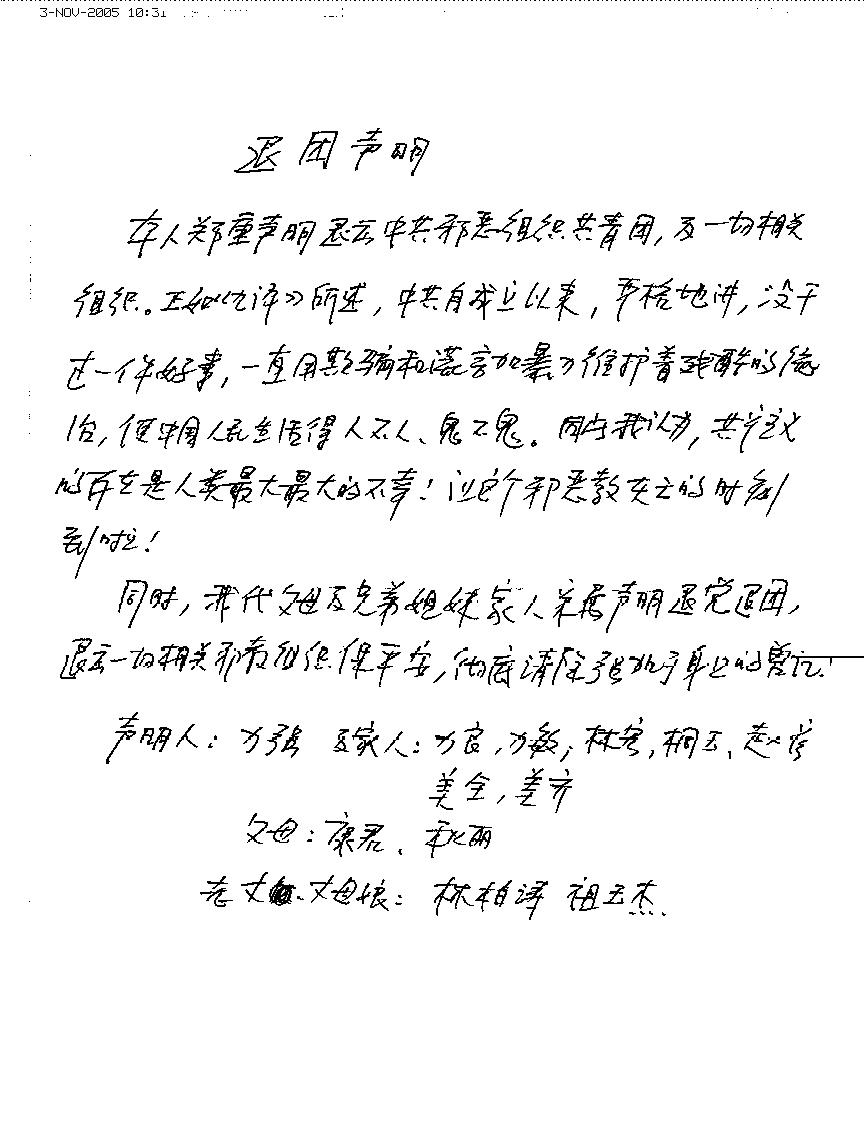 3-NOV-2005 10:31
退团声明
本人郑重声明退出中共邪恶组织共青团，及一切相关
组织。正如《九评》所述，中共自成立以来，严格地讲，没干
过一件好事，一直用欺骗和谎言加暴力维护着残酷的统
治，使中国人民生活得人不人、鬼不鬼。因此我认为，共产主义
的存在是人类最大最大的不幸！让这个邪恶教失去的时刻
到啦！
同时，我代父母及兄弟姐妹家人亲属声明退党退团，
退出一切相关邪教组织保平安，彻底清除强加于身上的兽记！
声明人：力强 及家人：力良，力敏，林宏，桐玉、赵彦
美全，美齐
父母：康君、秋丽
老丈、丈母娘：林柏译 祖玉杰